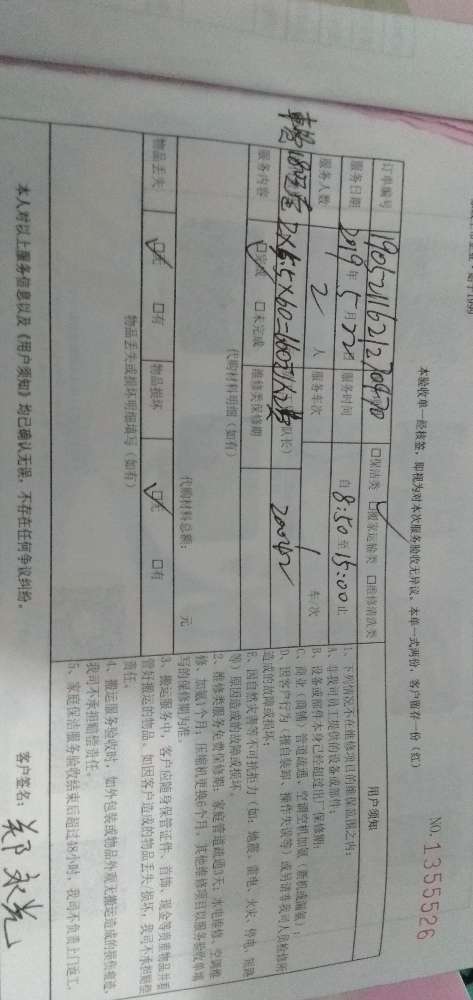 本验收单一经核签,即视为对本次服务验收无异议。本单一式两份,客户留存一份(红)
NO. 1355526
订单编号
□保洁类 □搬家运输类 □维修清洗类
服务日期 2019 年 5 月 22 日 服务时间 自 8:50 至 15:00 止
服务人数 2 人 服务车次 1 车/次
服务内容 □完成 □未完成 维修类保修期
代购材料明细(如有)
代购材料总额: 元
物品丢失 □无 □有 物品损坏 □无 □有
物品丢失或损坏明细填写(如有)
用户须知
1、下列情况不在维修项目的维保范围之内:
A、非我司员工提供的设备或部件;
B、设备或部件本身已经超过出厂保修期;
C、商业(商铺)管道疏通、空调空机加氟(新机或漏氟);
D、因客户行为(擅自装卸、操作失误等)或另请非我司人员检修所
造成的故障或损坏;
E、因自然灾害等不可抗拒力(如:地震、雷电、火灾、停电、短路
等)原因造成的故障或损坏。
2、维修类服务免费保修期:家庭管道疏通3天;水电维修、空调维
修、加氟1个月;压缩机更换6个月,其他维修项目以服务验收单填
写的保修期为准。
3、搬运服务中,客户应随身保管证件、首饰、现金等贵重物品并看
管好搬运的物品,如因客户造成的物品丢失/损坏,我司不承担赔偿
责任。
4、搬运服务验收时,如外包装或物品外观无搬运造成的损坏痕迹,
我司不承担赔偿责任。
5、家庭保洁服务验收结束后超过48小时,我司不负责上门返工。
本人对以上服务信息以及《用户须知》均已确认无误,不存在任何争议纠纷。
客户签名: 郑永光